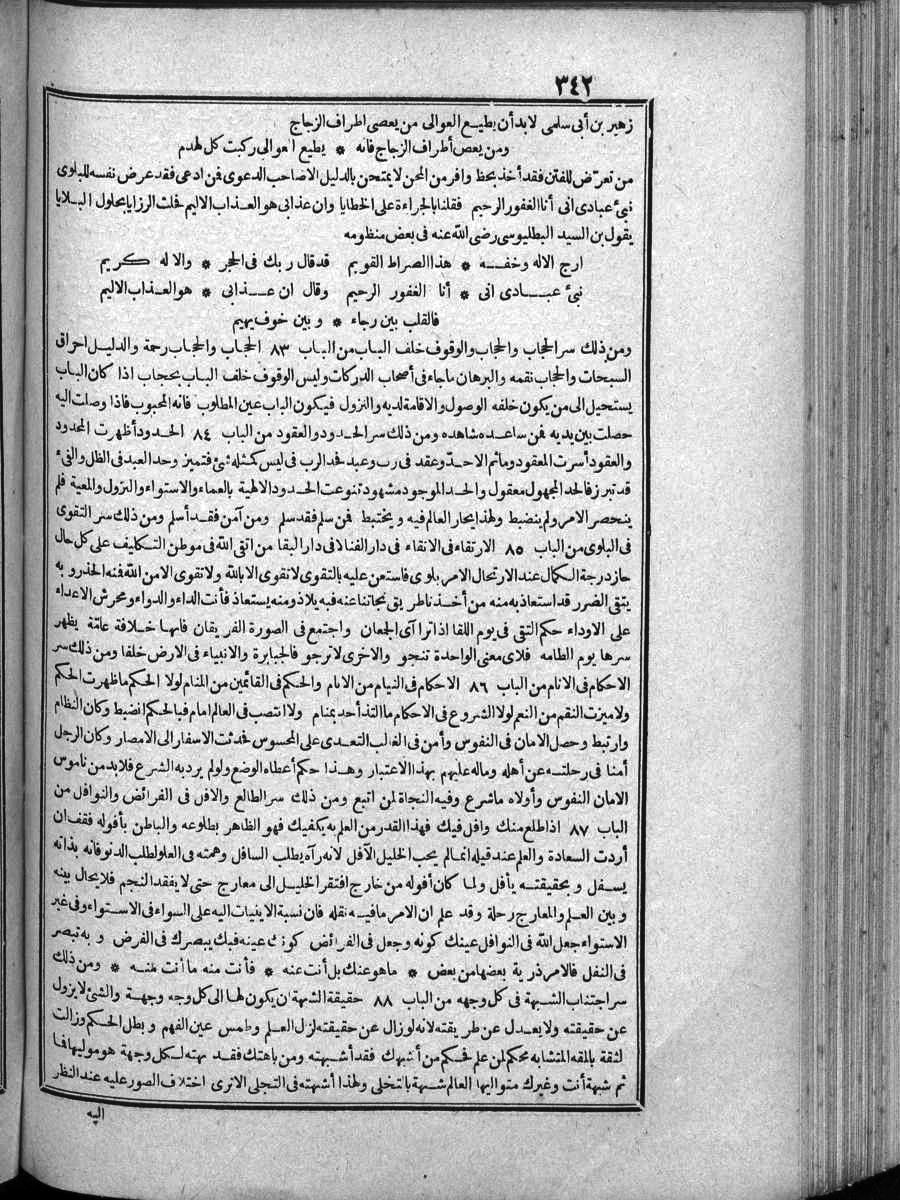 ٣٤٢
زهير بن أبي سلمى لابد أن يطيع العوالى من يعصى اطراف الزجاج
ومن يعص أطراف الزجاج فانه * يطيع العوالى ركبت كل لهدم
من تعرّض للفتن فقد أخذ بحظ وافر من المحن لا يمتحن بالدليل الاصاحب الدعوى فمن ادعى فقد عرض نفسه للبلوى
نبئ عبادى انى أنا الغفور الرحيم فقلنا بالجراءة على الخطايا وان عذابى هو العذاب الاليم فحلت الرزايا بحلول البلايا
يقول بن السيد البطليوسى رضى الله عنه فى بعض منظومه
ارج الاله وخفه * هذا الصراط القويم قد قال ربك فى الحجر * والاله كريم
نبئ عبادى انى * أنا الغفور الرحيم وقال ان عذابى * هو العذاب الاليم
فالقلب بين رجاء * وبين خوف يهيم
ومن ذلك سر الحجاب والحجاب والوقوف خلف الباب من الباب ٨٣ الحجاب والحجاب رحمة والدليل احراق
السبحات والحجاب نقمه والبرهان ماجاء فى أصحاب الدركات وليس الوقوف خلف الباب بحجاب اذا كان الباب
يستحيل الى من يكون خلفه الوصول والاقامة لديه والنزول فيكون الباب عين المطلوب فانه المحبوب فاذا وصلت اليه
حصلت بين يديه فمن ساعده شاهده ومن ذلك سر الحدود والعقود من الباب ٨٤ الحدود أظهرت المحدود
والعقود أسرت المعقود وماثم الاحدّ وعقد فى رب وعبد فحد الرب فى ليس كمثله شئ فتميز وحد العبد فى الظل والفىء
قد تبرز فالحد المجهول معقول والحد الموجود مشهود تنوعت الحدود الالهية بالعماء والاستواء والنزول والمعية فلم
ينحصر الامر ولم ينضبط ولهذا يحار العالم فيه ويختبط فمن سلم فقد سلم ومن آمن فقد أسلم ومن ذلك سر التقوى
فى البلوى من الباب ٨٥ الارتقاء فى الانقاء فى دار الفنا لا فى دار البقا من اتقى الله فى موطن التكليف على كل حال
حاز درجة الكمال عند الارتحال الامر بلوى فاستعن عليه بالتقوى لا تقوى الا بالله ولا تقوى الا من الله فمنه الحذر وبه
يتقى الضرر قد استعاذ به منه من أخذنا طريق نجاتنا عنه فبه يلاذ ومنه يستعاذ فأنت الداء والدواء ومحرش الاعداء
على الاوداء حكم التقى فى يوم اللقا اذا تراآى الجمعان واجتمع فى الصورة الفريقان فانها خلافة عامّة يظهر
سرها يوم الطامه فلاى معنى الواحدة تنجو والاخرى لا ترجو فالجبابرة والانبياء فى الارض خلفا ومن ذلك سر
الاحكام فى الانام من الباب ٨٦ الاحكام فى النيام من الانام والحكم فى القائمين من المنام لولا الحكم ما ظهرت الحكم
ولا ميزت النقم من النعم لولا الشروع فى الاحكام ما التذ أحد بمنام ولا انتصب فى العالم امام فبالحكم انضبط وكان النظام
وارتبط وحصل الامان فى النفوس وأمن فى الغالب التعدى على المحسوس فحدثت الاسفار الى الامصار وكان الرجل
أمنا فى رحلته عن أهله وماله عليهم بهذا الاعتبار وهذا حكم أعطاه الوضع ولو لم يرد به الشرع فلابد من ناموس
الامان النفوس وأولاه ماشرع وفيه النجاة لمن اتبع ومن ذلك سر الطالع والافل فى الفرائض والنوافل من
الباب ٨٧ اذا طلع منك وافل فيك فهذا القدر من العلم به يكفيك فهو الظاهر بطلوعه والباطن بأفوله فقف ان
أردت السعادة والعلم عند قيله انما لم يحب الخليل الآفل لانه رآه يطلب السافل وهمته فى العلو لطلب الدنو فانه بذاته
يسفل وبحقيقته يأفل ولما كان أفوله من خارج افتقر الخليل الى معارج حتى لا يفقد النجم فلا يحال بينه
وبين العلم والمعارج رحلة وقد علم ان الامر مافيه نقله فان نسبة الاينيات اليه على السواء فى الاستواء وفى غير
الاستواء جعل الله فى النوافل عينك كونه وجعل فى الفرائض كونك عينه فبك يبصرك فى الفرض وبه تبصر
فى النفل فالامر ذرية بعضها من بعض * ماهو عنك بل أنت عنه * فأنت منه ما أنت منه * ومن ذلك
سر اجتناب الشبهة فى كل وجهه من الباب ٨٨ حقيقة الشبهة ان يكون لها الى كل وجه وجهة والشئ لا يزول
عن حقيقته ولا يعدل عن طريقته لانه لو زال عن حقيقته لزل العلم وطمس عين الفهم وبطل الحكم وزالت
لثقة بالمقه المتشابه محكم لمن علم فحكم من أشبهك فقد أشبهته ومن باهتك فقد بهته لكل وجهة هو موليها فما
ثم شبهة أنت وغيرك متواليها العالم شبهة بالتخلى ولهذا أشبهته فى التجلى الاترى اختلاف الصور عليه عند النظر
اليه